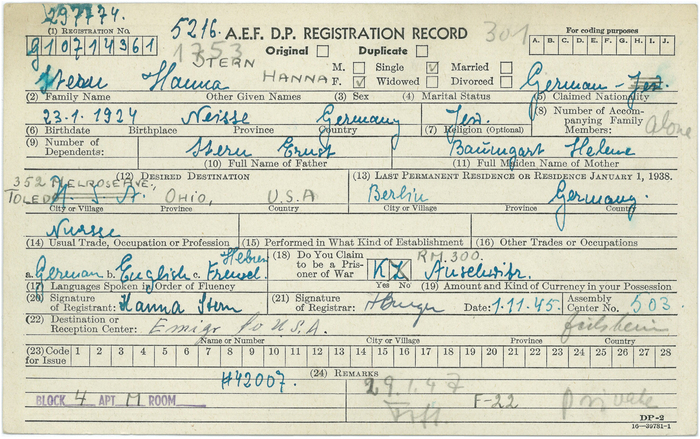 297774.
(1) REGISTRATION NO.
5216.
A.E.F. D.P. REGISTRATION RECORD
301
For coding purposes
G10714361
1753
Original
Duplicate
A. B. C. D. E. F. G. H. I. J.
STERN
HANNA
M. Single Married
F. Widowed Divorced
Stern Hanna
German - Jew.
(2) Family Name Other Given Names (3) Sex (4) Marital Status (5) Claimed Nationality
23.1.1924 Neisse Germany Jew.
(8) Number of Accompanying Family Members:
alone
(6) Birthdate Birthplace Province Country (7) Religion (Optional)
(9) Number of Dependents:
Stern Ernst
Baumgart Helene
(10) Full Name of Father (11) Full Maiden Name of Mother
352 MELROSE AVE.,
(12) DESIRED DESTINATION
(13) LAST PERMANENT RESIDENCE OR RESIDENCE JANUARY 1, 1938.
TOLEDO OHIO, U.S.A
Berlin Germany.
City or Village Province Country City or Village Province Country
Nursse
(14) Usual Trade, Occupation or Profession (15) Performed in What Kind of Establishment (16) Other Trades or Occupations
a. German b. English c.
(18) Do You Claim to be a Prisoner of War
Yes No
RM.300.
KZ
(17) Languages Spoken in Order of Fluency (19) Amount and Kind of Currency in your Possession
(20) Signature of Registrant: Hanna Stern
(21) Signature of Registrar:
Date: 1.11.45
Assembly Center No. 503
(22) Destination or Reception Center: Emigr to U.S.A.
Name or Number City or Village Province Country
(23) Code for Issue 1 2 3 4 5 6 7 8 9 10 11 12 13 14 15 16 17 18 19 20 21 22 23 24 25 26 27 28
(24) REMARKS
H42007.
BLOCK 4 APT M ROOM
29 1.47
F-22
private
DP-2
16—39781-1